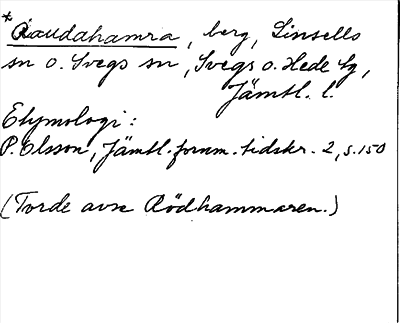 *Raudahamra, berg, Linsells
sn o. Svegs sn, Svegs o. Hede tg,
Jämtl. l.
Etymologi:
P. Olsson, Jämtl. fornm. tidskr. 2, s. 150
(Torde avse Rödhammaren.)